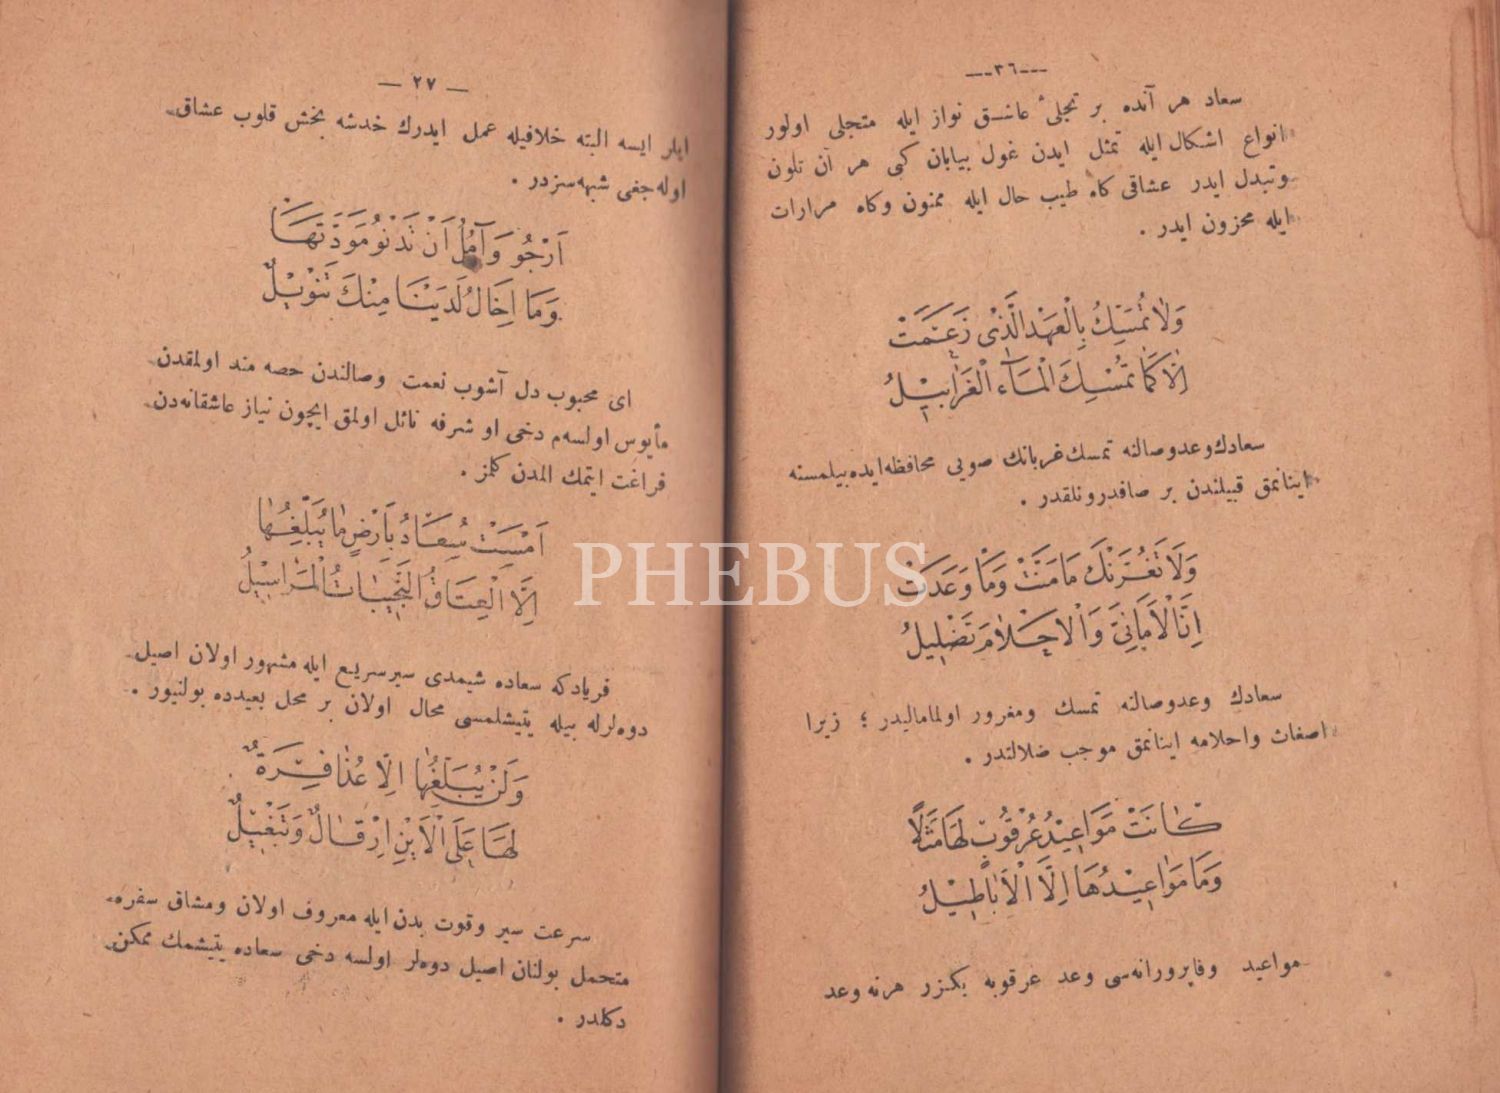 ---٣٦---
سعاد هر آنده بر تجلیٔ عاشق نواز ایله متجلی اولور
انواع اشکال ایله تمثل ایدن غول بیابان کبی هر آن تلون
وتبدل ایدر عشاقی کاه طیب حال ایله ممنون وکاه مرارات
ایله محزون ایدر .
وَلَا تُمْسِكُ بِالْعَهْدِ الَّذِى زَعَمَتْ
اِلَّا كَمَا تُمْسِكُ الْمَاءَ الْغَرَابِيلُ
سعادك وعد وصالنه تمسك غربالك صویی محافظه ایده بیلمسنه
اینانمق قبیلندن بر صافدرونلقدر .
وَلَا تَغُرَّنْكَ مَا مَنَّتْ وَمَا وَعَدَتْ
اِنَّ الْاَمَانِىَّ وَالْاَحْلَامَ تَضْلِيلُ
سعادك وعد وصالنه تمسك ومغرور اولمامالیدر ؛ زیرا
اضغاث واحلامه اینانمق موجب ضلالتدر .
كَانَتْ مَوَاعِيدُ عُرْقُوبٍ لَهَا مَثَلًا
وَمَا مَوَاعِيدُهَا اِلَّا الْاَبَاطِيلُ
مواعید وفاپرورانه‌سی وعد عرقوبه بکزر هرنه وعد
— ٢٧ —
ایلر ایسه البته خلافیله عمل ایدرك خدشه بخش قلوب عشاق
اوله‌جغی شبهه‌سزدر .
اَرْجُو وَآمُلُ اَنْ تَدْنُو مَوَدَّتُهَا
وَمَا اِخَالُ لَدَيْنَا مِنْكَ تَنْوِيلُ
ای محبوب دل آشوب نعمت وصالندن حصه مند اولمقدن
مأیوس اولسه‌م دخی او شرفه نائل اولمق ایچون نیاز عاشقانه‌دن
فراغت ایتمك المدن کلمز .
اَمْسَتْ سُعَادُ بِاَرْضٍ مَا يُبَلِّغُهَا
اِلَّا الْعِتَاقُ النَّجِيبَاتُ الْمَرَاسِيلُ
فریادکه سعاده شیمدی سیر سریع ایله مشهور اولان اصیل
دوه‌لرله بیله یتیشلمسی محال اولان بر محل بعیدده بولنیور .
وَلَنْ يُبَلِّغُهَا اِلَّا عُذَافِرَةٌ
لَهَا عَلَى الْاَيْنِ اِرْقَالٌ وَتَبْغِيلُ
سرعت سیر وقوت بدن ایله معروف اولان ومشاق سفره
متحمل بولنان اصیل دوه‌لر اولسه دخی سعاده یتیشمك ممکن
دکلدر .
PHEBUS